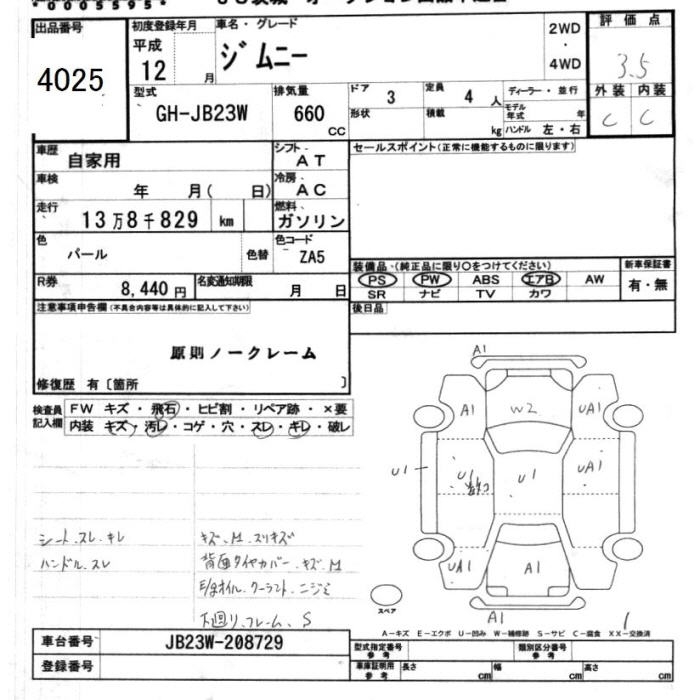 *0005595*
出品番号
4025
初度登録年月
平成
12 月
車名・グレード
ジムニー
2WD
・
4WD
評価点
3.5
外装 内装
C C
型式
GH-JB23W
排気量
660
CC
ドア 3
定員 4 人
形状
積載 kg
ディーラー・並行
モデル年式 年
ハンドル 左・右
車歴
自家用
シフト
AT
セールスポイント(正常に機能するものに限ります)
車検
年 月( 日)
冷房
AC
走行
13万8千829 km
燃料
ガソリン
色
パール
色替
色コード
ZA5
装備品・(純正品に限り○をつけてください)
PS PW ABS エアB AW
SR ナビ TV カワ
新車保証書
有・無
R券
8,440円
名変通知期限
月 日
後日品
注意事項申告欄(不具合内容等は具体的に記入して下さい)
原則ノークレーム
修復歴 有〔箇所 〕
検査員記入欄
FW キズ・飛石・ヒビ割・リペア跡・×要
内装 キズ・汚レ・コゲ・穴・スレ・キレ・破レ
A1
A1 W2 UA1
U1 U1 U1 UA1
UA1 A1
A1
スペア
シート、スレ、キレ
ハンドル、スレ
キズ、凹、スリキズ
背面タイヤカバー、キズ、凹
E/gオイル、クーラント、ニジミ
下廻り、フレーム、S
A−キズ E−エクボ U−凹み W−補修跡 S−サビ C−腐食 XX−交換済
車台番号
JB23W-208729
登録番号
型式指定番号
参考
類別区分番号
参考
車庫証明用
参考
長さ cm 幅 cm 高さ cm